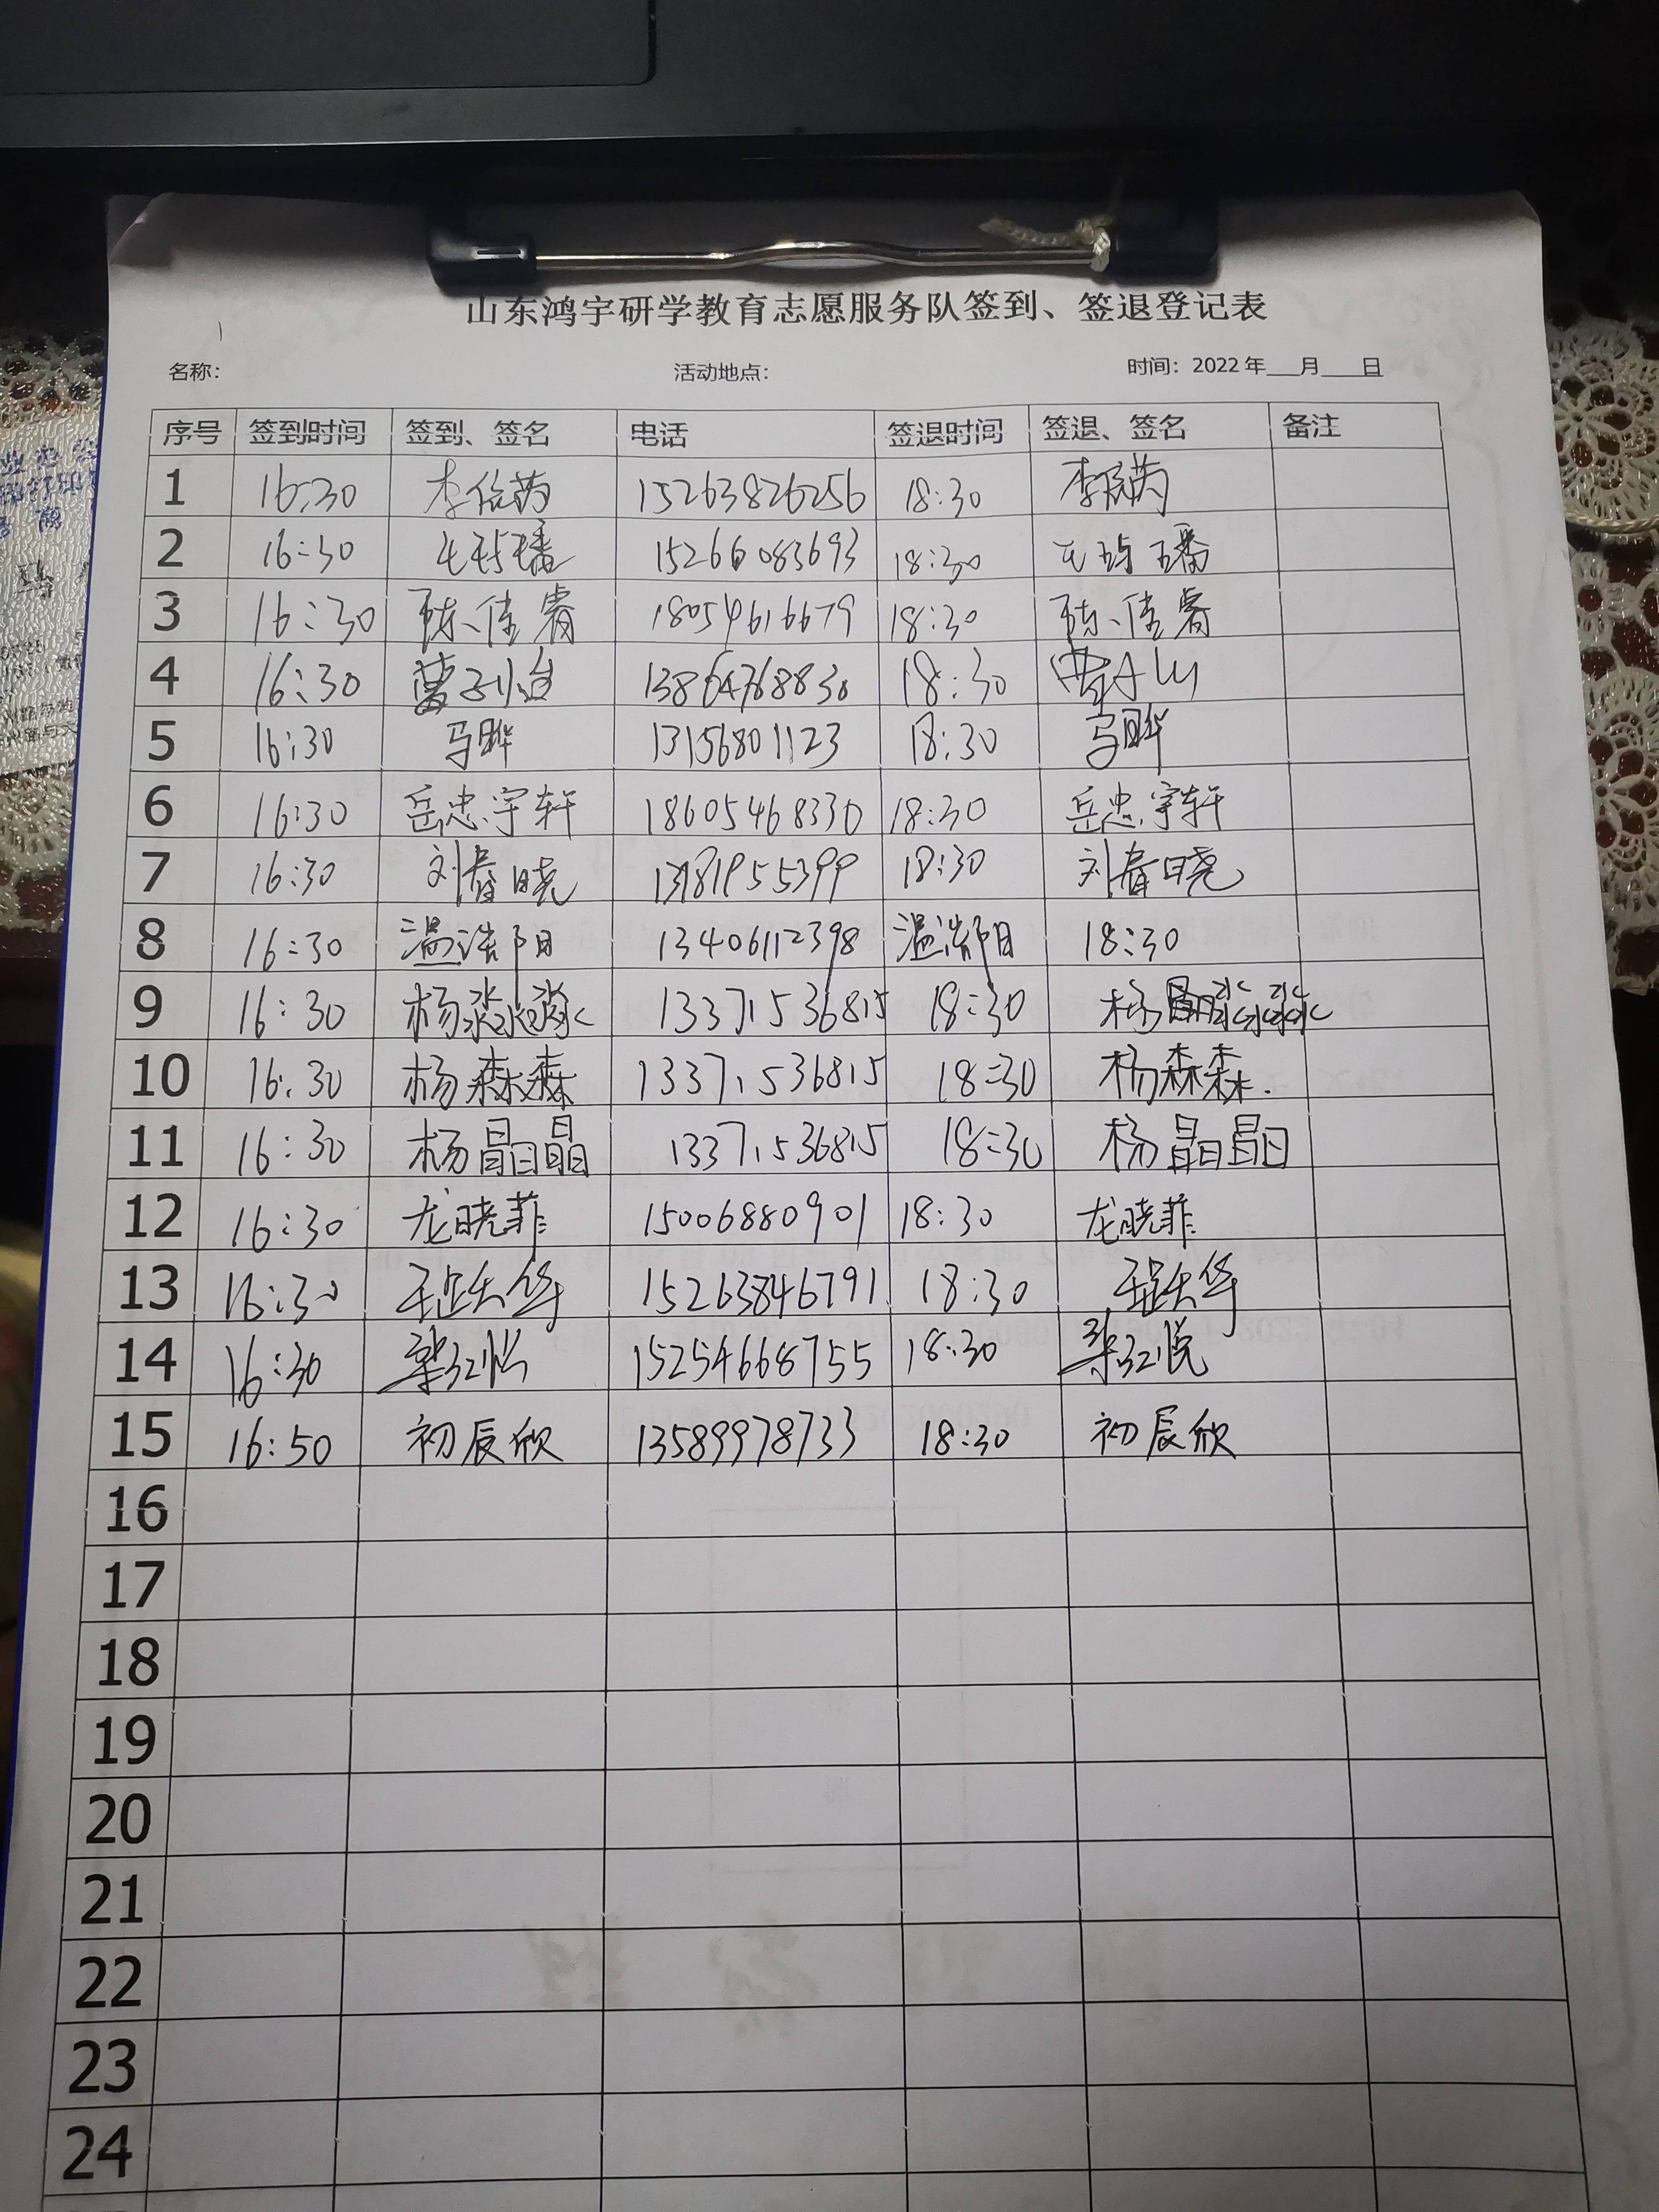 山东鸿宇研学教育志愿服务队签到、签退登记表
名称: 活动地点: 时间: 2022年___月___日
序号 签到时间 签到、签名 电话 签退时间 签退、签名 备注
1 16:30 15263826256 18:30
2 16:30 15266083693 18:30
3 16:30 陈佳睿 18054616679 18:30 陈佳睿
4 16:30 13864768830 18:30
5 16:30 马晔 13156801123 18:30 马晔
6 16:30 岳忠宇轩 18605468330 18:30 岳忠宇轩
7 16:30 刘春晓 18:30 刘春晓
8 16:30 温浩阳 13406112398 温浩阳 18:30
9 16:30 杨淼淼 13371536815 18:30 杨淼淼
10 16:30 杨森森 13371536815 18:30 杨森森.
11 16:30 杨晶晶 13371536815 18:30 杨晶晶
12 16:30 龙晓菲 15006880901 18:30 龙晓菲
13 16:30 15263846791 18:30
14 16:30 15254668755 18:30
15 16:50 初辰欣 13589978733 18:30 初辰欣
16
17
18
19
20
21
22
23
24